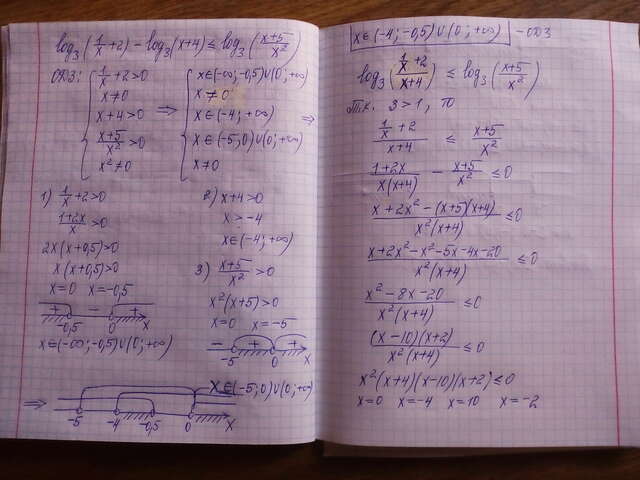 log₃(1/x+2) - log₃(x+4) ≤ log₃((x+5)/x²)
ОДЗ: { 1/x+2>0
x≠0
x+4>0
(x+5)/x²>0
x²≠0
⇒ { x∈(-∞;-0,5)∪(0;+∞)
x≠0
x∈(-4;+∞)
x∈(-5;0)∪(0;+∞)
x≠0
⇒
1) 1/x+2>0
(1+2x)/x>0
2x(x+0,5)>0
x(x+0,5)>0
x=0 x=-0,5
+ - +
-0,5 0 x
x∈(-∞;-0,5)∪(0;+∞)
2) x+4>0
x>-4
x∈(-4;+∞)
3) (x+5)/x²>0
x²(x+5)>0
x=0 x=-5
- + +
-5 0 x
x∈(-5;0)∪(0;+∞)
⇒
-5 -4 -0,5 0 x
x∈(-4;-0,5)∪(0;+∞) - ОДЗ
log₃((1/x+2)/(x+4)) ≤ log₃((x+5)/x²)
Т.к. 3>1, то
(1/x+2)/(x+4) ≤ (x+5)/x²
(1+2x)/(x(x+4)) - (x+5)/x² ≤0
(x+2x²-(x+5)(x+4))/(x²(x+4)) ≤0
(x+2x²-x²-5x-4x-20)/(x²(x+4)) ≤0
(x²-8x-20)/(x²(x+4)) ≤0
((x-10)(x+2))/(x²(x+4)) ≤0
x²(x+4)(x-10)(x+2)≤0
x=0 x=-4 x=10 x=-2